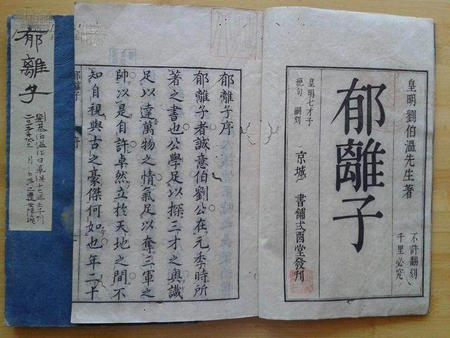 皇明劉伯溫先生著
郁離子
不許翻刻
千里必究
皇明七才子
京城
書鋪文酉堂發刊
郁離子序
郁離子者誠意伯劉公在元季時所
著之書也公學足以探三才之奧識
足以達萬物之情氣足以奪三軍之
帥以是自許卓然立於天地之間不
知自視與古之豪傑何如也年二十
郁離子